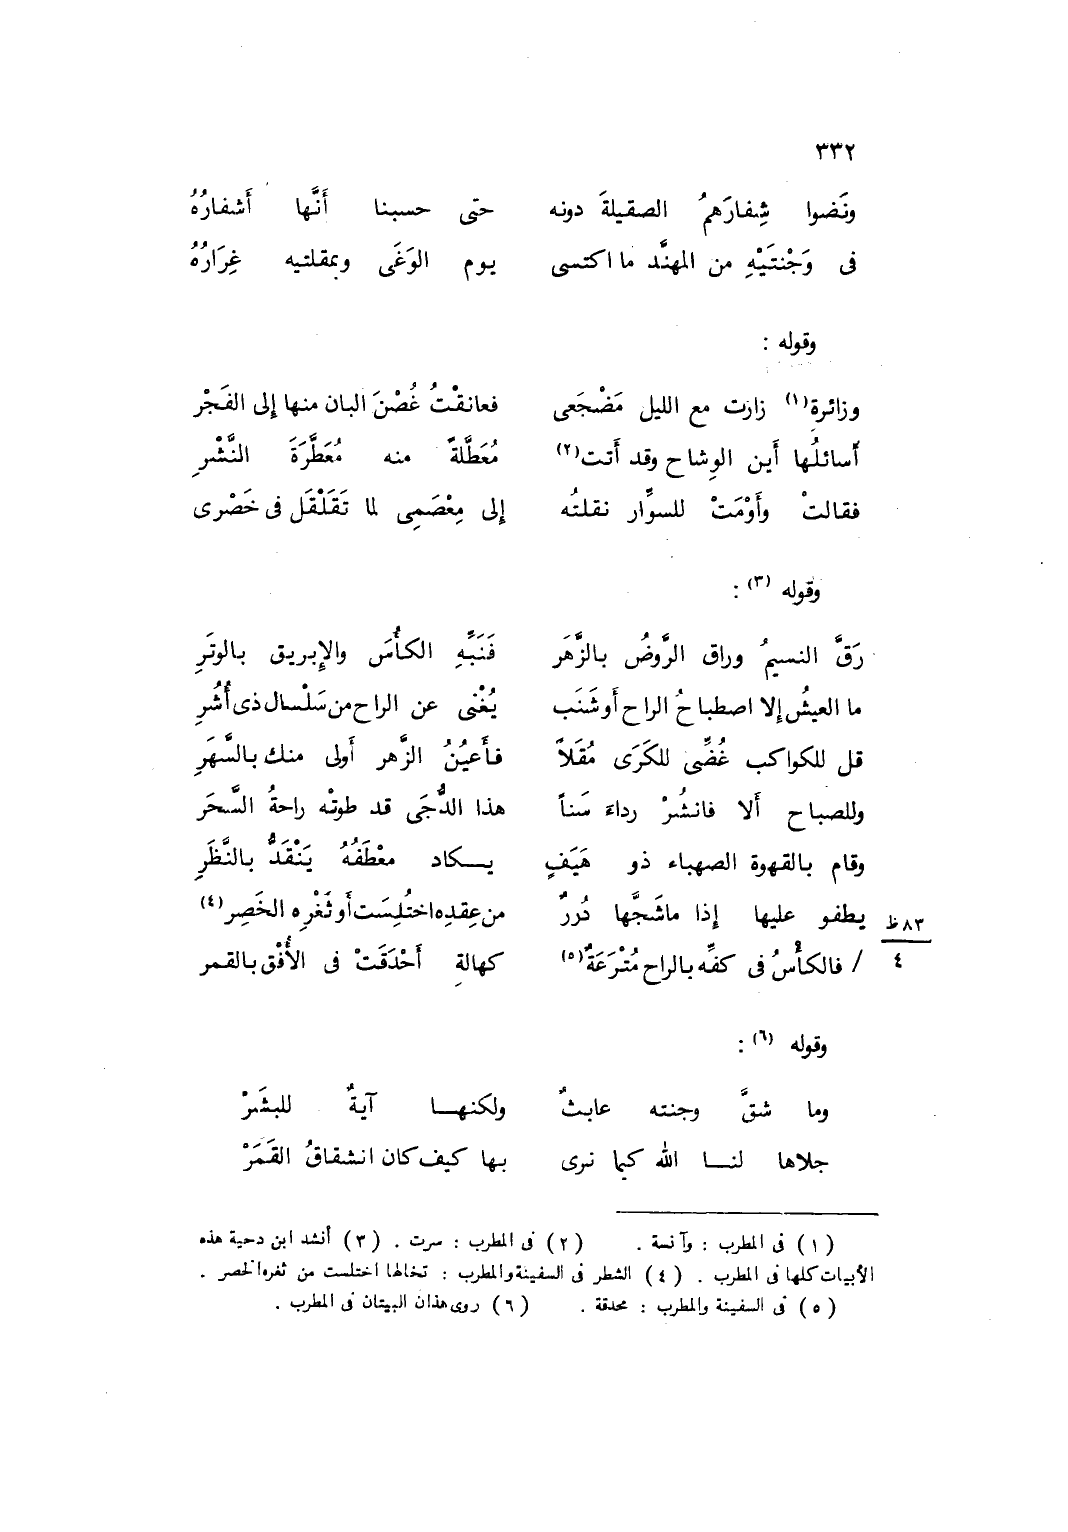 ٣٣٢
ونَضوا شِفارَهمُ الصقيلةَ دونه حتى حسبنا أَنَّها أَشفارُهُ
فى وَجْنتَيْهِ من المهنَّد ما اكتسى يوم الوَغَى وبمقلتيه غِرَارُهُ
وقوله :
وزائرة(١) زارت مع الليل مَضْجَعى فعانقْتُ غُصْنَ البان منها إلى الفَجْر
أسائلُها أَين الوِشاح وقد أَتت(٢) مُعَطَّلةً منه مُعَطَّرَةَ النَّشْرِ
فقالتْ وأَوْمَتْ للسوِّار نقلتُه إلى مِعْصَمِى لما تَقَلْقَل فى خَصْرى
وقوله (٣) :
رَقَّ النسيمُ وراق الرَّوضُ بالزَّهَر فَنَبِّهِ الكأْسَ والإبريق بالوتَرِ
ما العيشُ إلا اصطباحُ الراح أو شَنَب يُغْنى عن الراح من سَلْسال ذى أُشُرِ
قل للكواكب غُضِّى للكَرَى مُقَلاً فأَعيُنُ الزَّهر أَولى منك بالسَّهَرِ
وللصباح أَلا فانشُرْ رداءَ سَناً هذا الدُّجَى قد طوتْه راحةُ السَّحَر
وقام بالقهوة الصهباء ذو هَيَفٍ يكاد معْطَفُهُ يَنْقَدُّ بالنَّظَرِ
٨٣ظ يطفو عليها إذا ماشَجَّها دُررٌ من عِقدِه اختُلِسَت أو ثَغْرِه الخَصِر(٤)
٤ / فالكأْسُ فى كفِّه بالراح مُتْرَعَةٌ(٥) كهالةِ أَحْدَقَتْ فى الأُفْق بالقمر
وقوله (٦) :
وما شقَّ وجنته عابثٌ ولكنها آيةٌ للبشَرْ
جلاها لنا الله كيما نرى بها كيف كان انشقاقُ القَمَرْ
(١) فى المطرب : وآنسة . (٢) فى المطرب : سرت . (٣) أنشد ابن دحية هذه
الأبيات كلها فى المطرب . (٤) الشطر فى السفينة والمطرب : تخالها اختلست من ثغره الخصر .
(٥) فى السفينة والمطرب : محدقة . (٦) روى هذان البيتان فى المطرب .